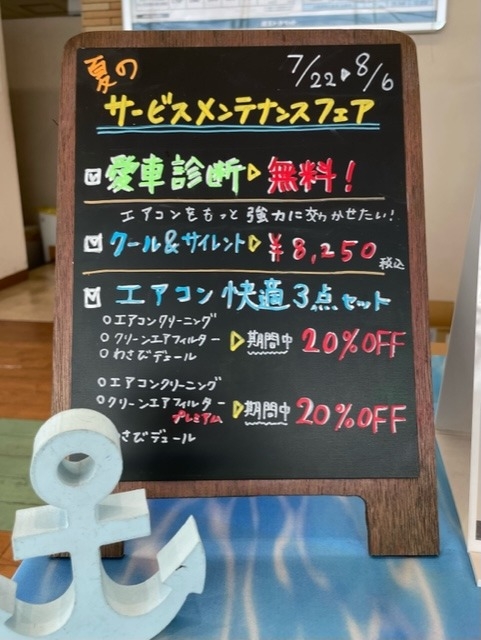 夏の 7/22▶8/6
サービスメンテナンスフェア
☑愛車診断▷無料！
エアコンをもっと強力に効かせたい！
☑クール＆サイレント▷¥8,250税込
☑エアコン快適3点セット
○エアコンクリーニング
○クリーンエアフィルター ▷期間中 20%OFF
○わさびデェール
○エアコンクリーニング
○クリーンエアフィルター ▷期間中 20%OFF
プレミアム
さびデェール